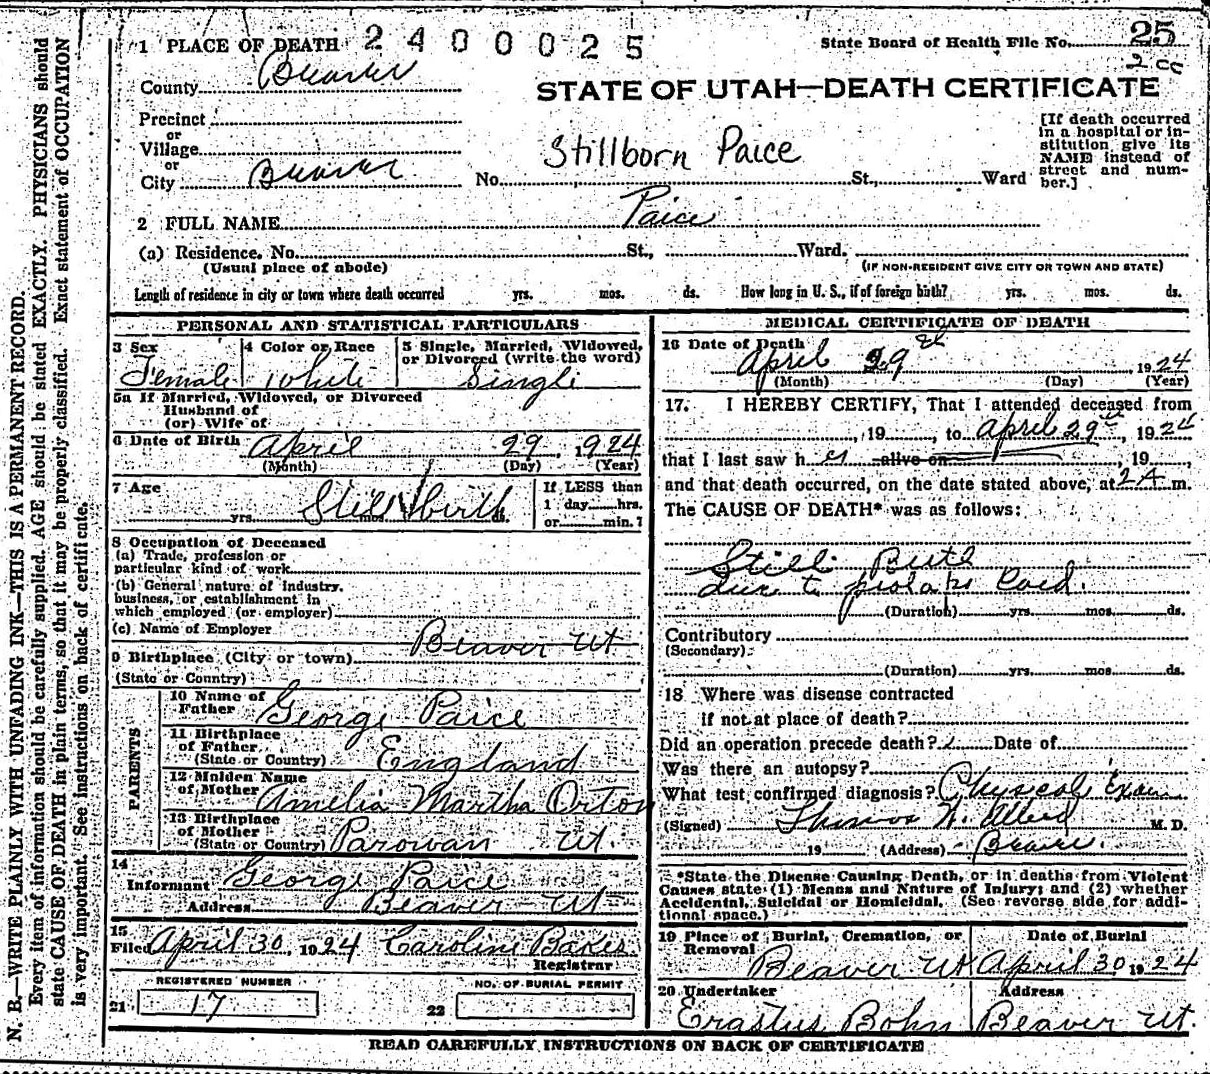 N. B.—WRITE PLAINLY WITH UNFADING INK—THIS IS A PERMANENT RECORD.
Every item of information should be carefully supplied. AGE should be stated EXACTLY. PHYSICIANS should
state CAUSE OF DEATH in plain terms, so that it may be properly classified. Exact statement of OCCUPATION
is very important. See instructions on back of certificate.
1 PLACE OF DEATH 2400025 State Board of Health File No. 25
County Beaver
STATE OF UTAH—DEATH CERTIFICATE
Precinct
or
Village
or
City Beaver
Stillborn Paice
No. St., Ward
[If death occurred
in a hospital or in-
stitution give its
NAME instead of
street and num-
ber.]
2 FULL NAME Paice
(a) Residence. No. St., Ward.
(Usual place of abode) (IF NON-RESIDENT GIVE CITY OR TOWN AND STATE)
Length of residence in city or town where death occurred yrs. mos. ds. How long in U. S., if of foreign birth? yrs. mos. ds.
PERSONAL AND STATISTICAL PARTICULARS
3 Sex Female
4 Color or Race White
5 Single, Married, Widowed,
or Divorced (write the word)
Single
5a If Married, Widowed, or Divorced
Husband of
(or) Wife of
6 Date of Birth April 29, 1924
(Month) (Day) (Year)
7 Age Still birth
yrs. mos. ds.
If LESS than
1 day hrs.
or min.?
8 Occupation of Deceased
(a) Trade, profession or
particular kind of work
(b) General nature of industry,
business, or establishment in
which employed (or employer)
(c) Name of Employer
9 Birthplace (City or town) Beaver Ut
(State or Country)
PARENTS
10 Name of
Father George Paice
11 Birthplace
of Father
(State or Country) England
12 Maiden Name
of Mother Amelia Martha Orton
13 Birthplace
of Mother
(State or Country) Parowan Ut.
14
Informant George Paice
Address Beaver Ut
15
Filed April 30, 1924 Caroline Baker
Registrar
REGISTERED NUMBER
21 17
NO. OF BURIAL PERMIT
22
MEDICAL CERTIFICATE OF DEATH
16 Date of Death
April 29 th 1924
(Month) (Day) (Year)
17. I HEREBY CERTIFY, That I attended deceased from
, 19 , to April 29th, 1924
that I last saw h er alive on , 19 ,
and that death occurred, on the date stated above, at 2 A m.
The CAUSE OF DEATH* was as follows:
Still Birth
due to prolaps Cord.
(Duration) yrs. mos. ds.
Contributory
(Secondary)
(Duration) yrs. mos. ds.
18 Where was disease contracted
if not at place of death?
Did an operation precede death? Date of
Was there an autopsy?
What test confirmed diagnosis? Physcal Exam
(Signed) M. D.
19 (Address) Beaver.
*State the Disease Causing Death, or in deaths from Violent
Causes state (1) Means and Nature of Injury; and (2) whether
Accidental, Suicidal or Homicidal. (See reverse side for addi-
tional space.)
19 Place of Burial, Cremation, or
Removal
Beaver Ut
Date of Burial
April 30 1924
20 Undertaker
Erastus Bohn
Address
Beaver Ut.
READ CAREFULLY INSTRUCTIONS ON BACK OF CERTIFICATE